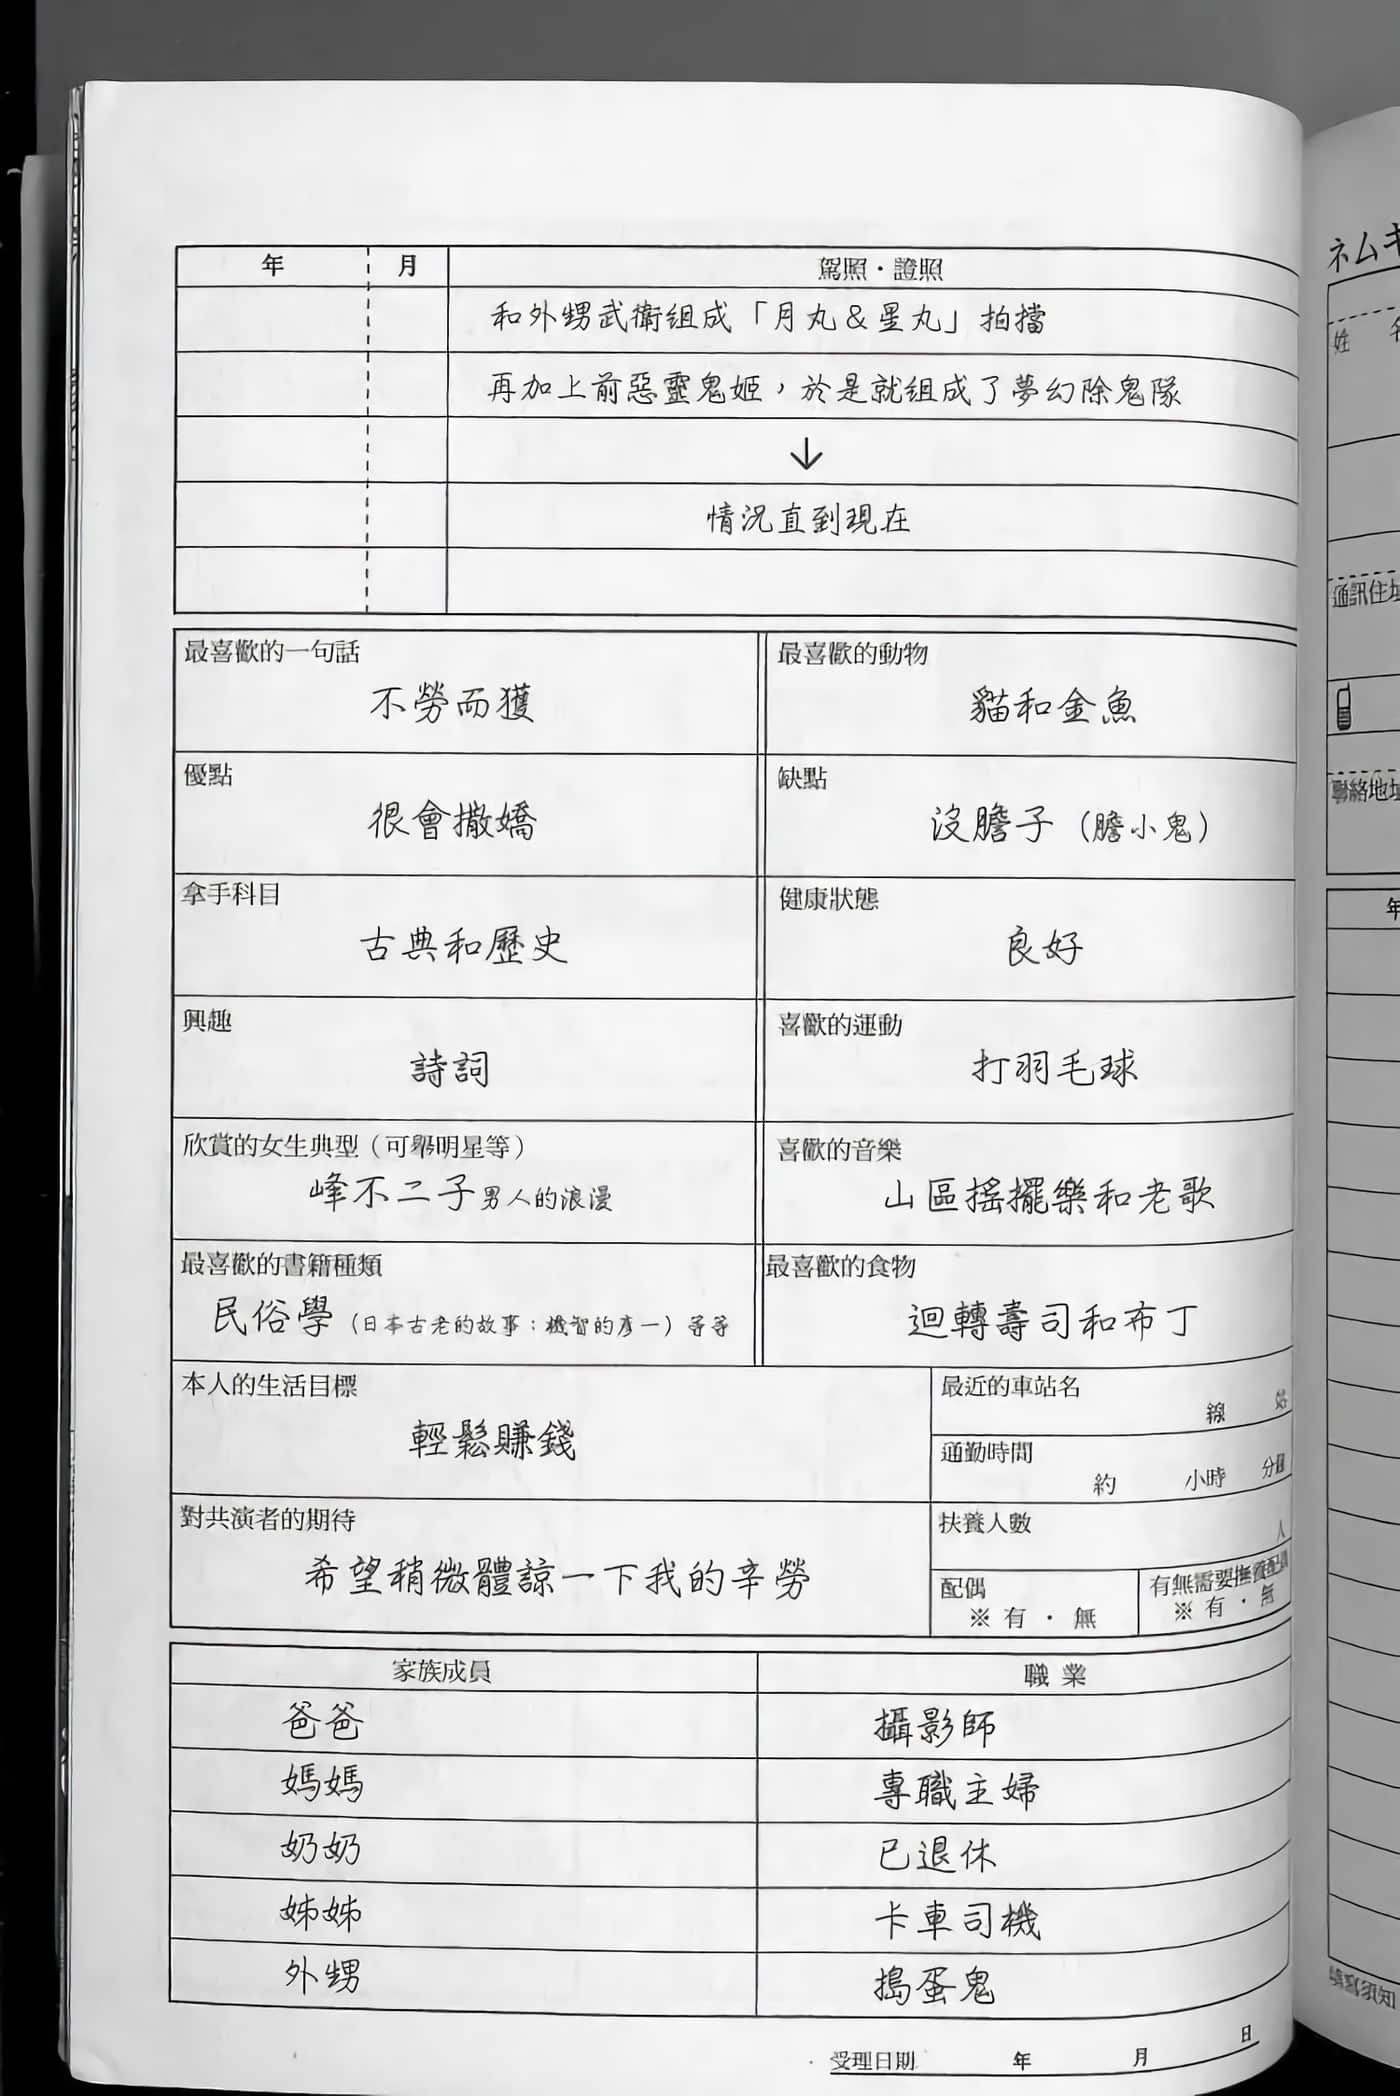 年 月 駕照・證照
和外甥武衛組成「月丸＆星丸」拍擋
再加上前惡靈鬼姬，於是就組成了夢幻除鬼隊
↓
情況直到現在
最喜歡的一句話
不勞而獲
最喜歡的動物
貓和金魚
優點
很會撒嬌
缺點
沒膽子（膽小鬼）
拿手科目
古典和歷史
健康狀態
良好
興趣
詩詞
喜歡的運動
打羽毛球
欣賞的女生典型（可舉明星等）
峰不二子男人的浪漫
喜歡的音樂
山區搖擺樂和老歌
最喜歡的書籍種類
民俗學（日本古老的故事：機智的彥一）等等
最喜歡的食物
迴轉壽司和布丁
本人的生活目標
輕鬆賺錢
最近的車站名
線 站
通勤時間
約 小時 分鐘
對共演者的期待
希望稍微體諒一下我的辛勞
扶養人數
人
配偶
※ 有 ・ 無
有無需要撫養配偶
※ 有 ・ 無
家族成員 職業
爸爸 攝影師
媽媽 專職主婦
奶奶 已退休
姊姊 卡車司機
外甥 搗蛋鬼
受理日期 年 月 日
ネムキ
姓 名
通訊住址
聯絡地址
年
填寫須知